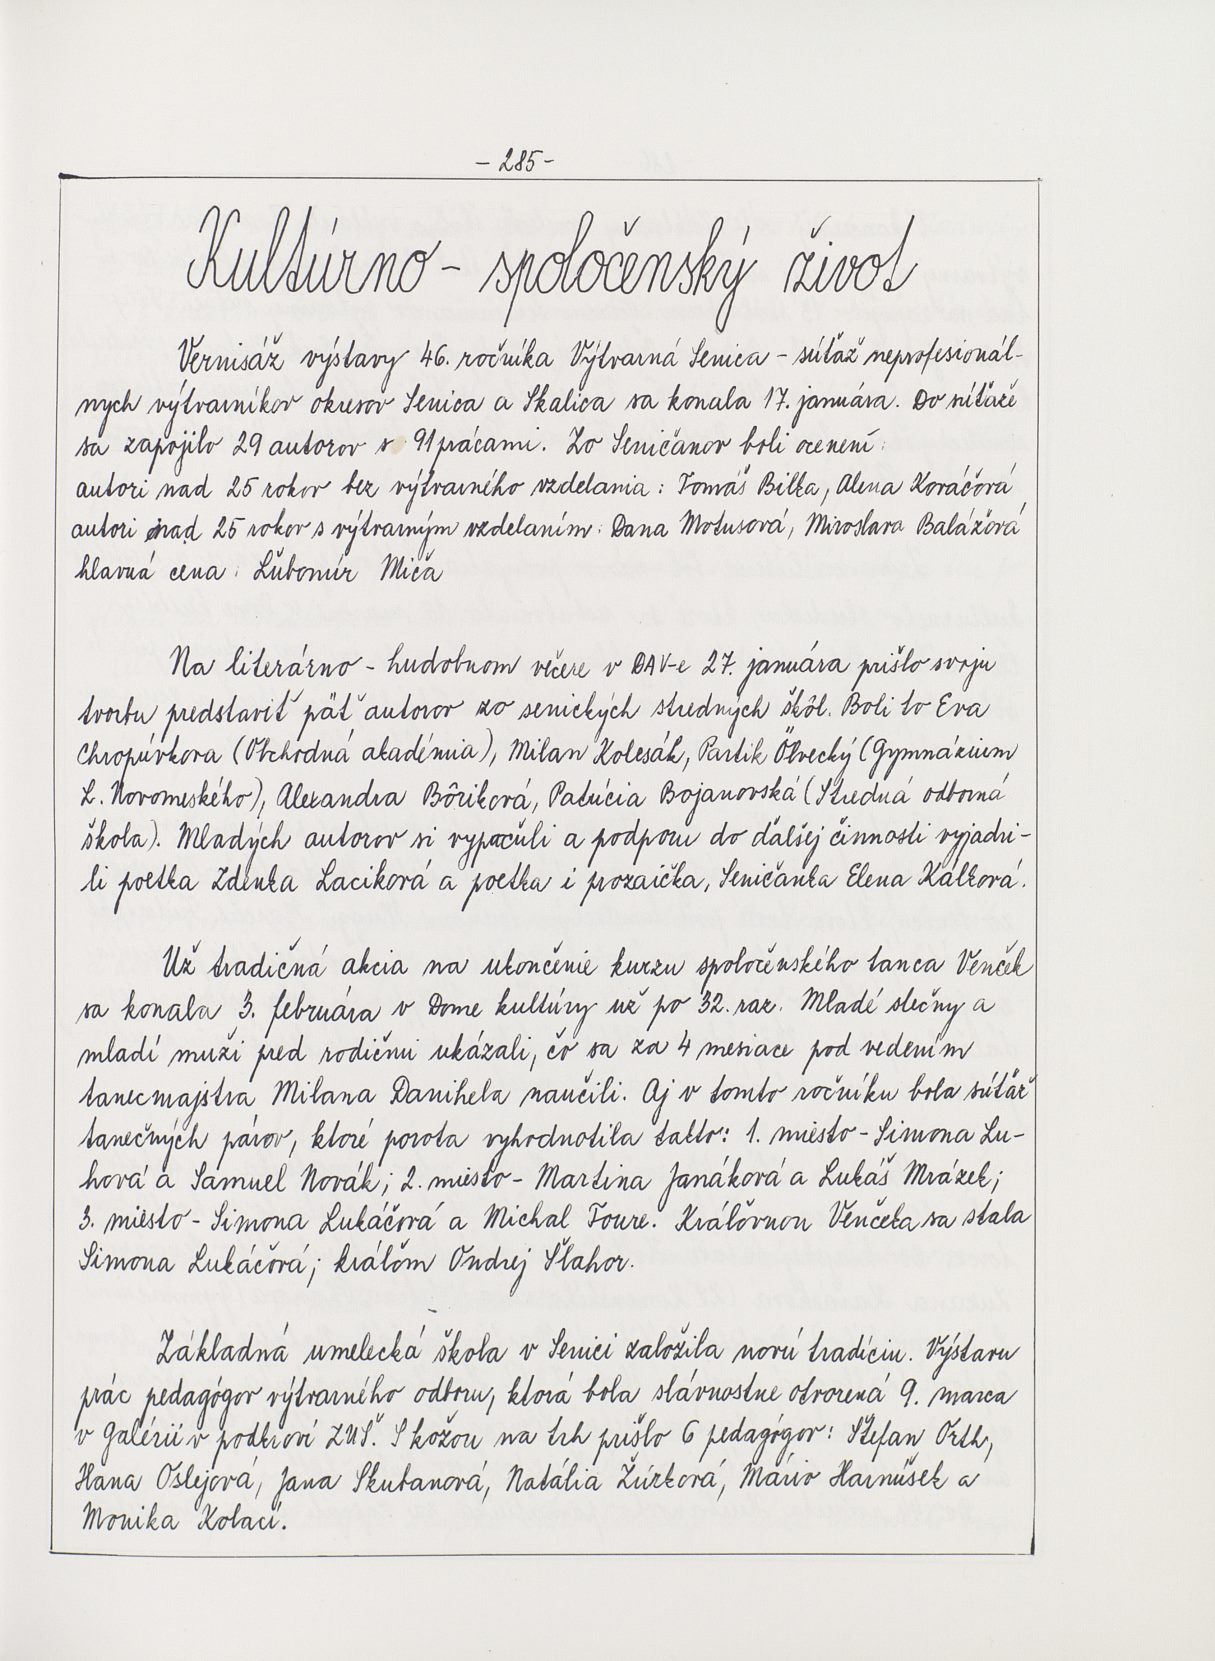 - 285 -
Kultúrno - spoločenský život
Vernisáž výstavy 46. ročníka Výtvarná Senica - súťaž neprofesionál-
nych výtvarníkov okresov Senica a Skalica sa konala 17. januára. Do súťaže
sa zapojilo 29 autorov s 91 prácami. Zo Seničanov boli ocenení:
autori nad 25 rokov bez výtvarného vzdelania: Tomáš Bilka, Alena Kováčová
autori nad 25 rokov s výtvarným vzdelaním: Dana Motusová, Miroslava Balážová
hlavná cena: Ľubomír Miča
Na literárno - hudobnom večere v DAV-e 27. januára prišlo svoju
tvorbu predstaviť päť autorov zo senických stredných škôl. Boli to Eva
Chropúvkova (Obchodná akadémia), Milan Kolesák, Partik Ölvecký (Gymnázium
L. Novomeského), Alexandra Bôriková, Patrícia Bojanovská (Stredná odborná
škola). Mladých autorov si vypočuli a podporu do ďalšej činnosti vyjadri-
li poetka Zdenka Laciková a poetka i prozaička, Seničanka Elena Kálková.
Už tradičná akcia na ukončenie kurzu spoločenského tanca Venček
sa konala 3. februára v Dome kultúry už po 32. raz. Mladé slečny a
mladí muži pred rodičmi ukázali, čo sa za 4 mesiace pod vedením
tanecmajstra Milana Danihela naučili. Aj v tomto ročníku bola súťaž
tanečných párov, ktoré porota vyhodnotila takto: 1. miesto - Simona Lu-
hová a Samuel Novák; 2. miesto - Martina Janáková a Lukáš Mrázek;
3. miesto - Simona Lukáčová a Michal Toure. Kráľovnou Venčeka sa stala
Simona Lukáčová; kráľom Ondrej Šlahor.
Základná umelecká škola v Senici založila novú tradíciu. Výstavu
prác pedagógov výtvarného odboru, ktorá bola slávnostne otvorená 9. marca
v Galérii v podkroví ZUŠ. S kožou na trh prišlo 6 pedagógov: Štefan Orth,
Hana Oslejová, Jana Skubanová, Natália Žúrková, Mário Harnúsek a
Monika Kolací.